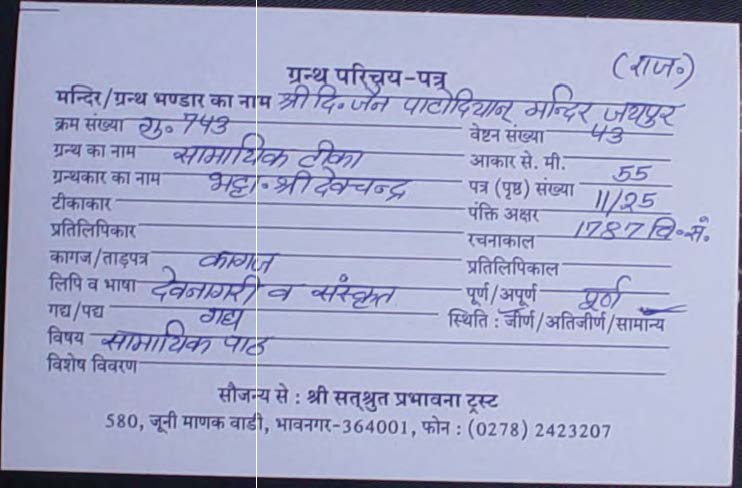 (राज०)
ग्रन्थ परिचय-पत्र
मन्दिर/ग्रन्थ भण्डार का नाम श्री दि० जैन पाटोदियान् मन्दिर जयपुर
क्रम संख्या गु० 743 वेष्टन संख्या 43
ग्रन्थ का नाम सामायिक टीका आकार से. मी.
ग्रन्थकार का नाम भट्टा० श्री देवचन्द्र पत्र (पृष्ठ) संख्या 55
टीकाकार पंक्ति अक्षर 11/25
प्रतिलिपिकार रचनाकाल 1787 वि० सं.
कागज/ताड़पत्र कागज प्रतिलिपिकाल
लिपि व भाषा देवनागरी व संस्कृत पूर्ण/अपूर्ण पूर्ण
गद्य/पद्य गद्य स्थिति : जीर्ण/अतिजीर्ण/सामान्य
विषय सामायिक पाठ
विशेष विवरण
सौजन्य से : श्री सत्श्रुत प्रभावना ट्रस्ट
580, जूनी माणक वाडी, भावनगर-364001, फोन : (0278) 2423207